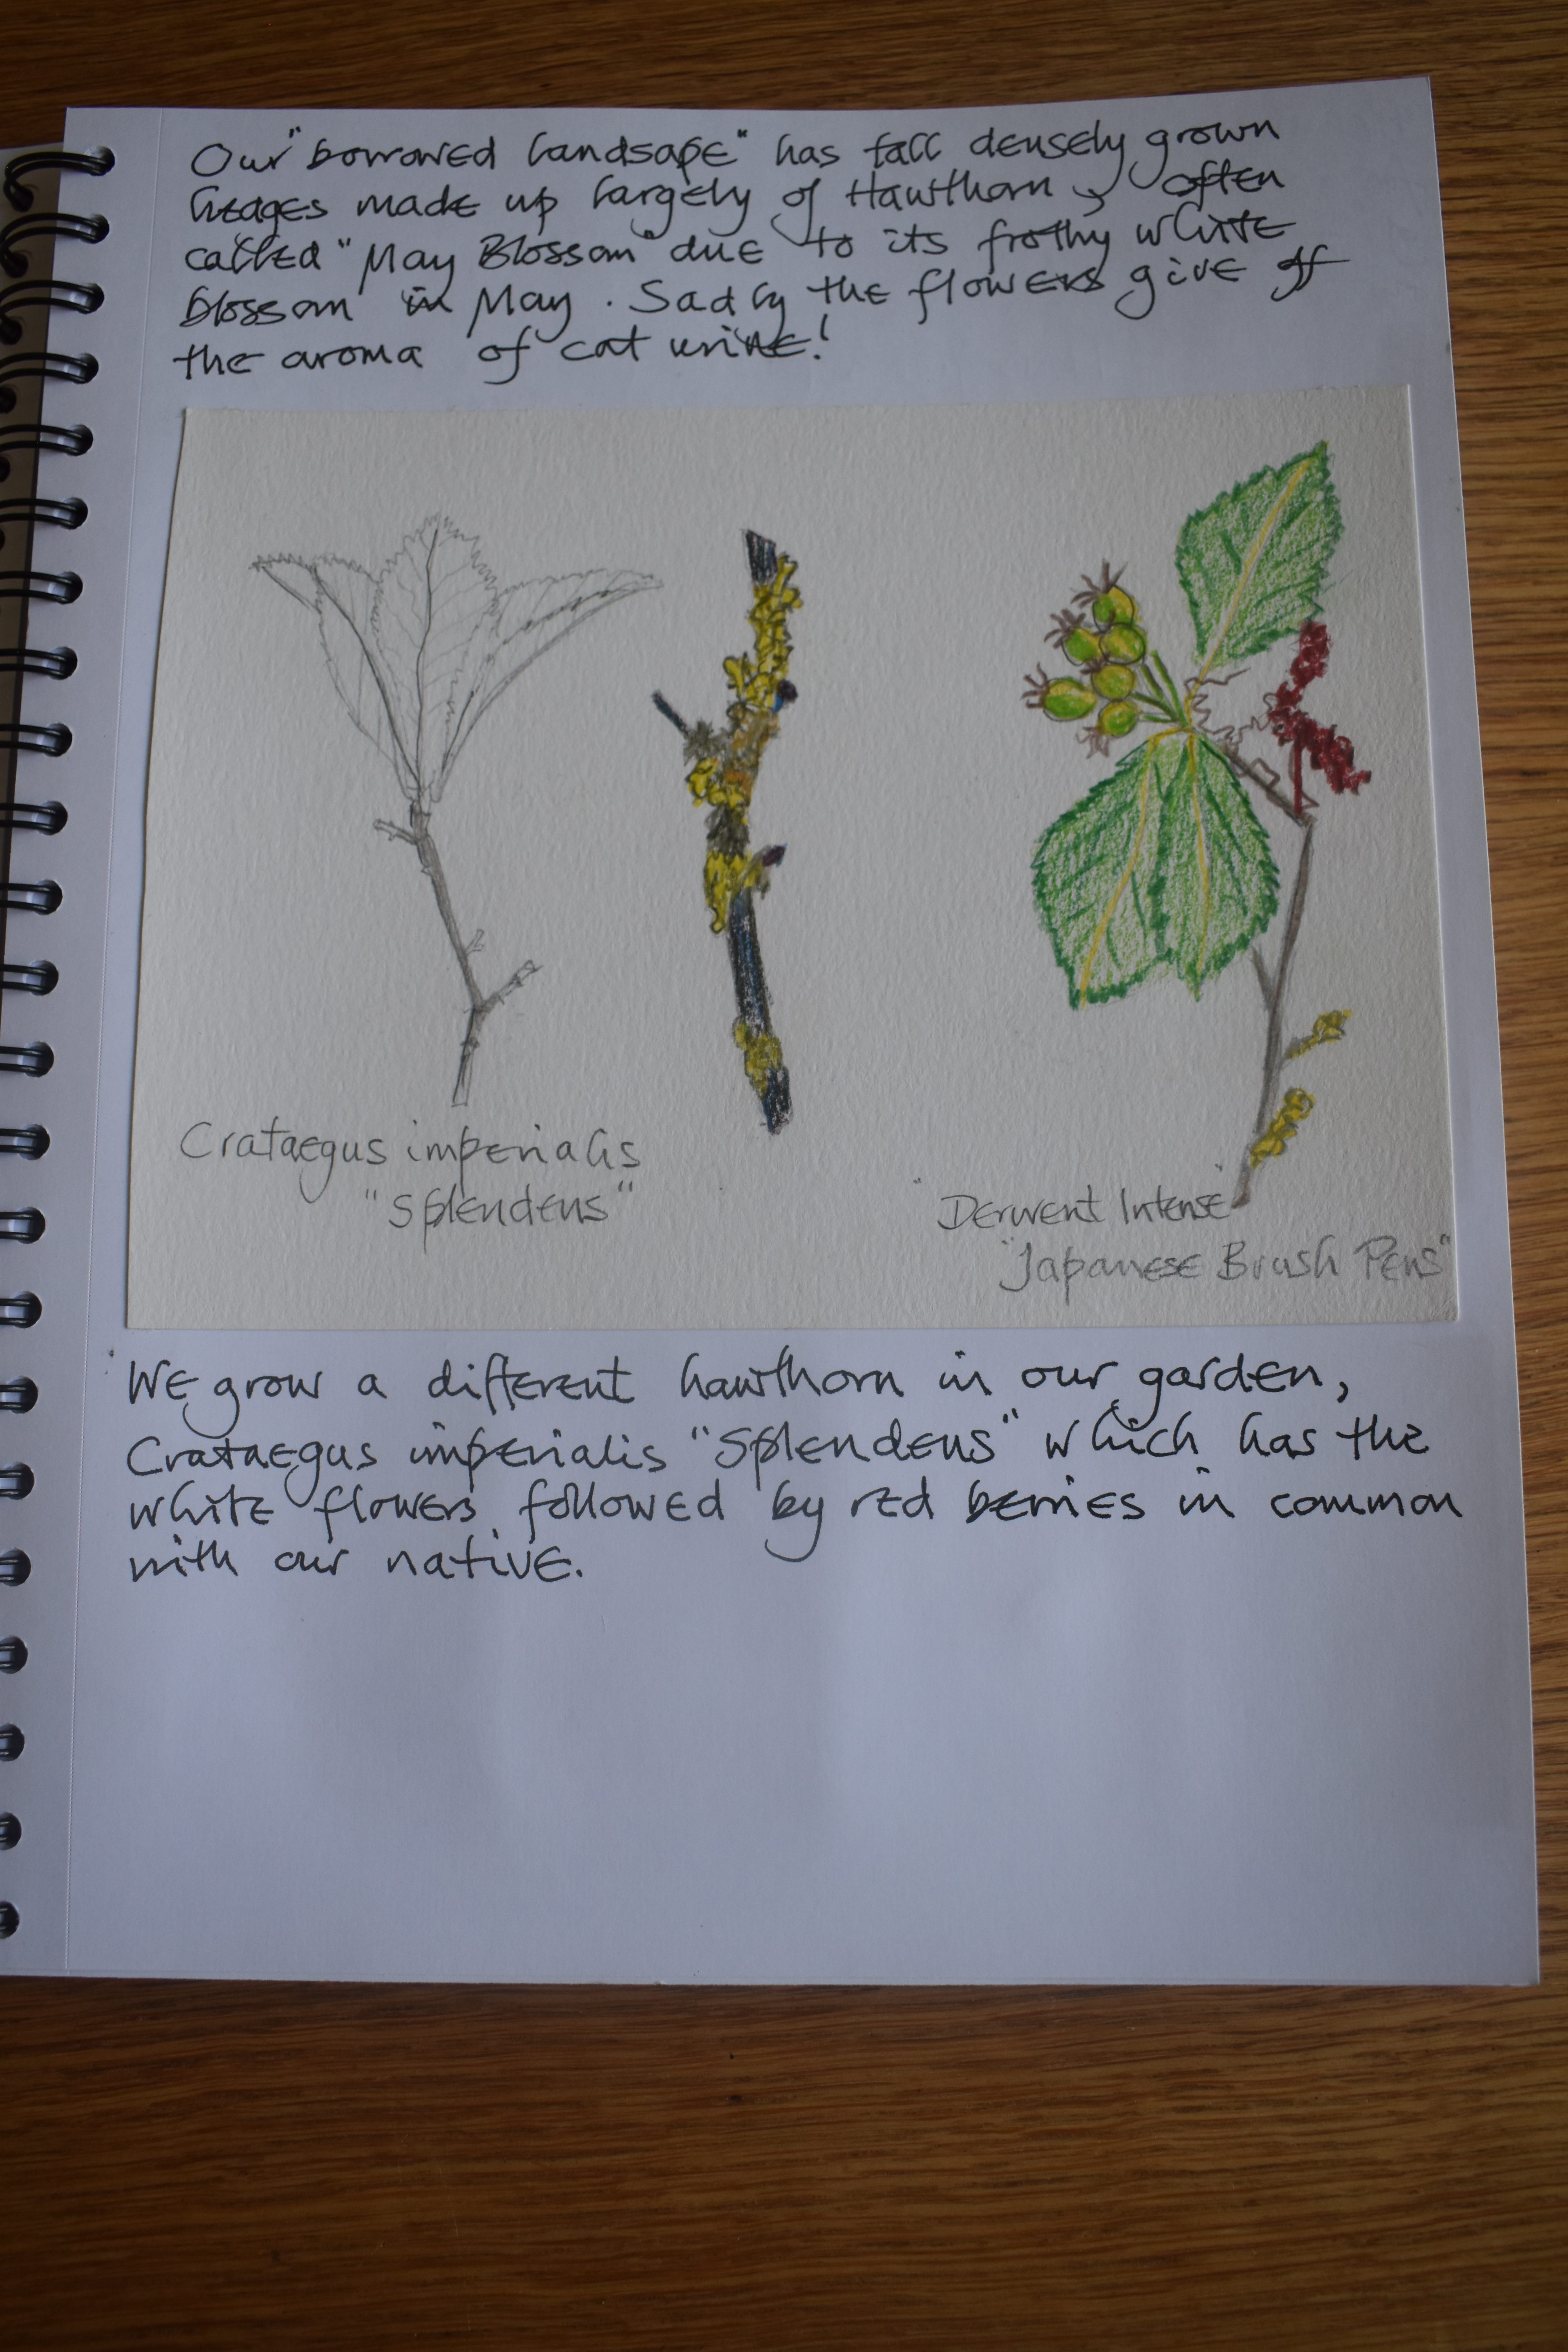 Our "borrowed landsape" has tall densely grown
hedges made up largely of Hawthorn, often
called "May Blossom" due to its frothy white
blossom in May. Sadly the flowers give off
the aroma of cat urine!
Crataegus imperialis
"Splendens"
"Derwent Intense"
"Japanese Brush Pens"
We grow a different hawthorn in our garden,
Crataegus imperialis "Splendens" which has the
white flowers followed by red berries in common
with our native.